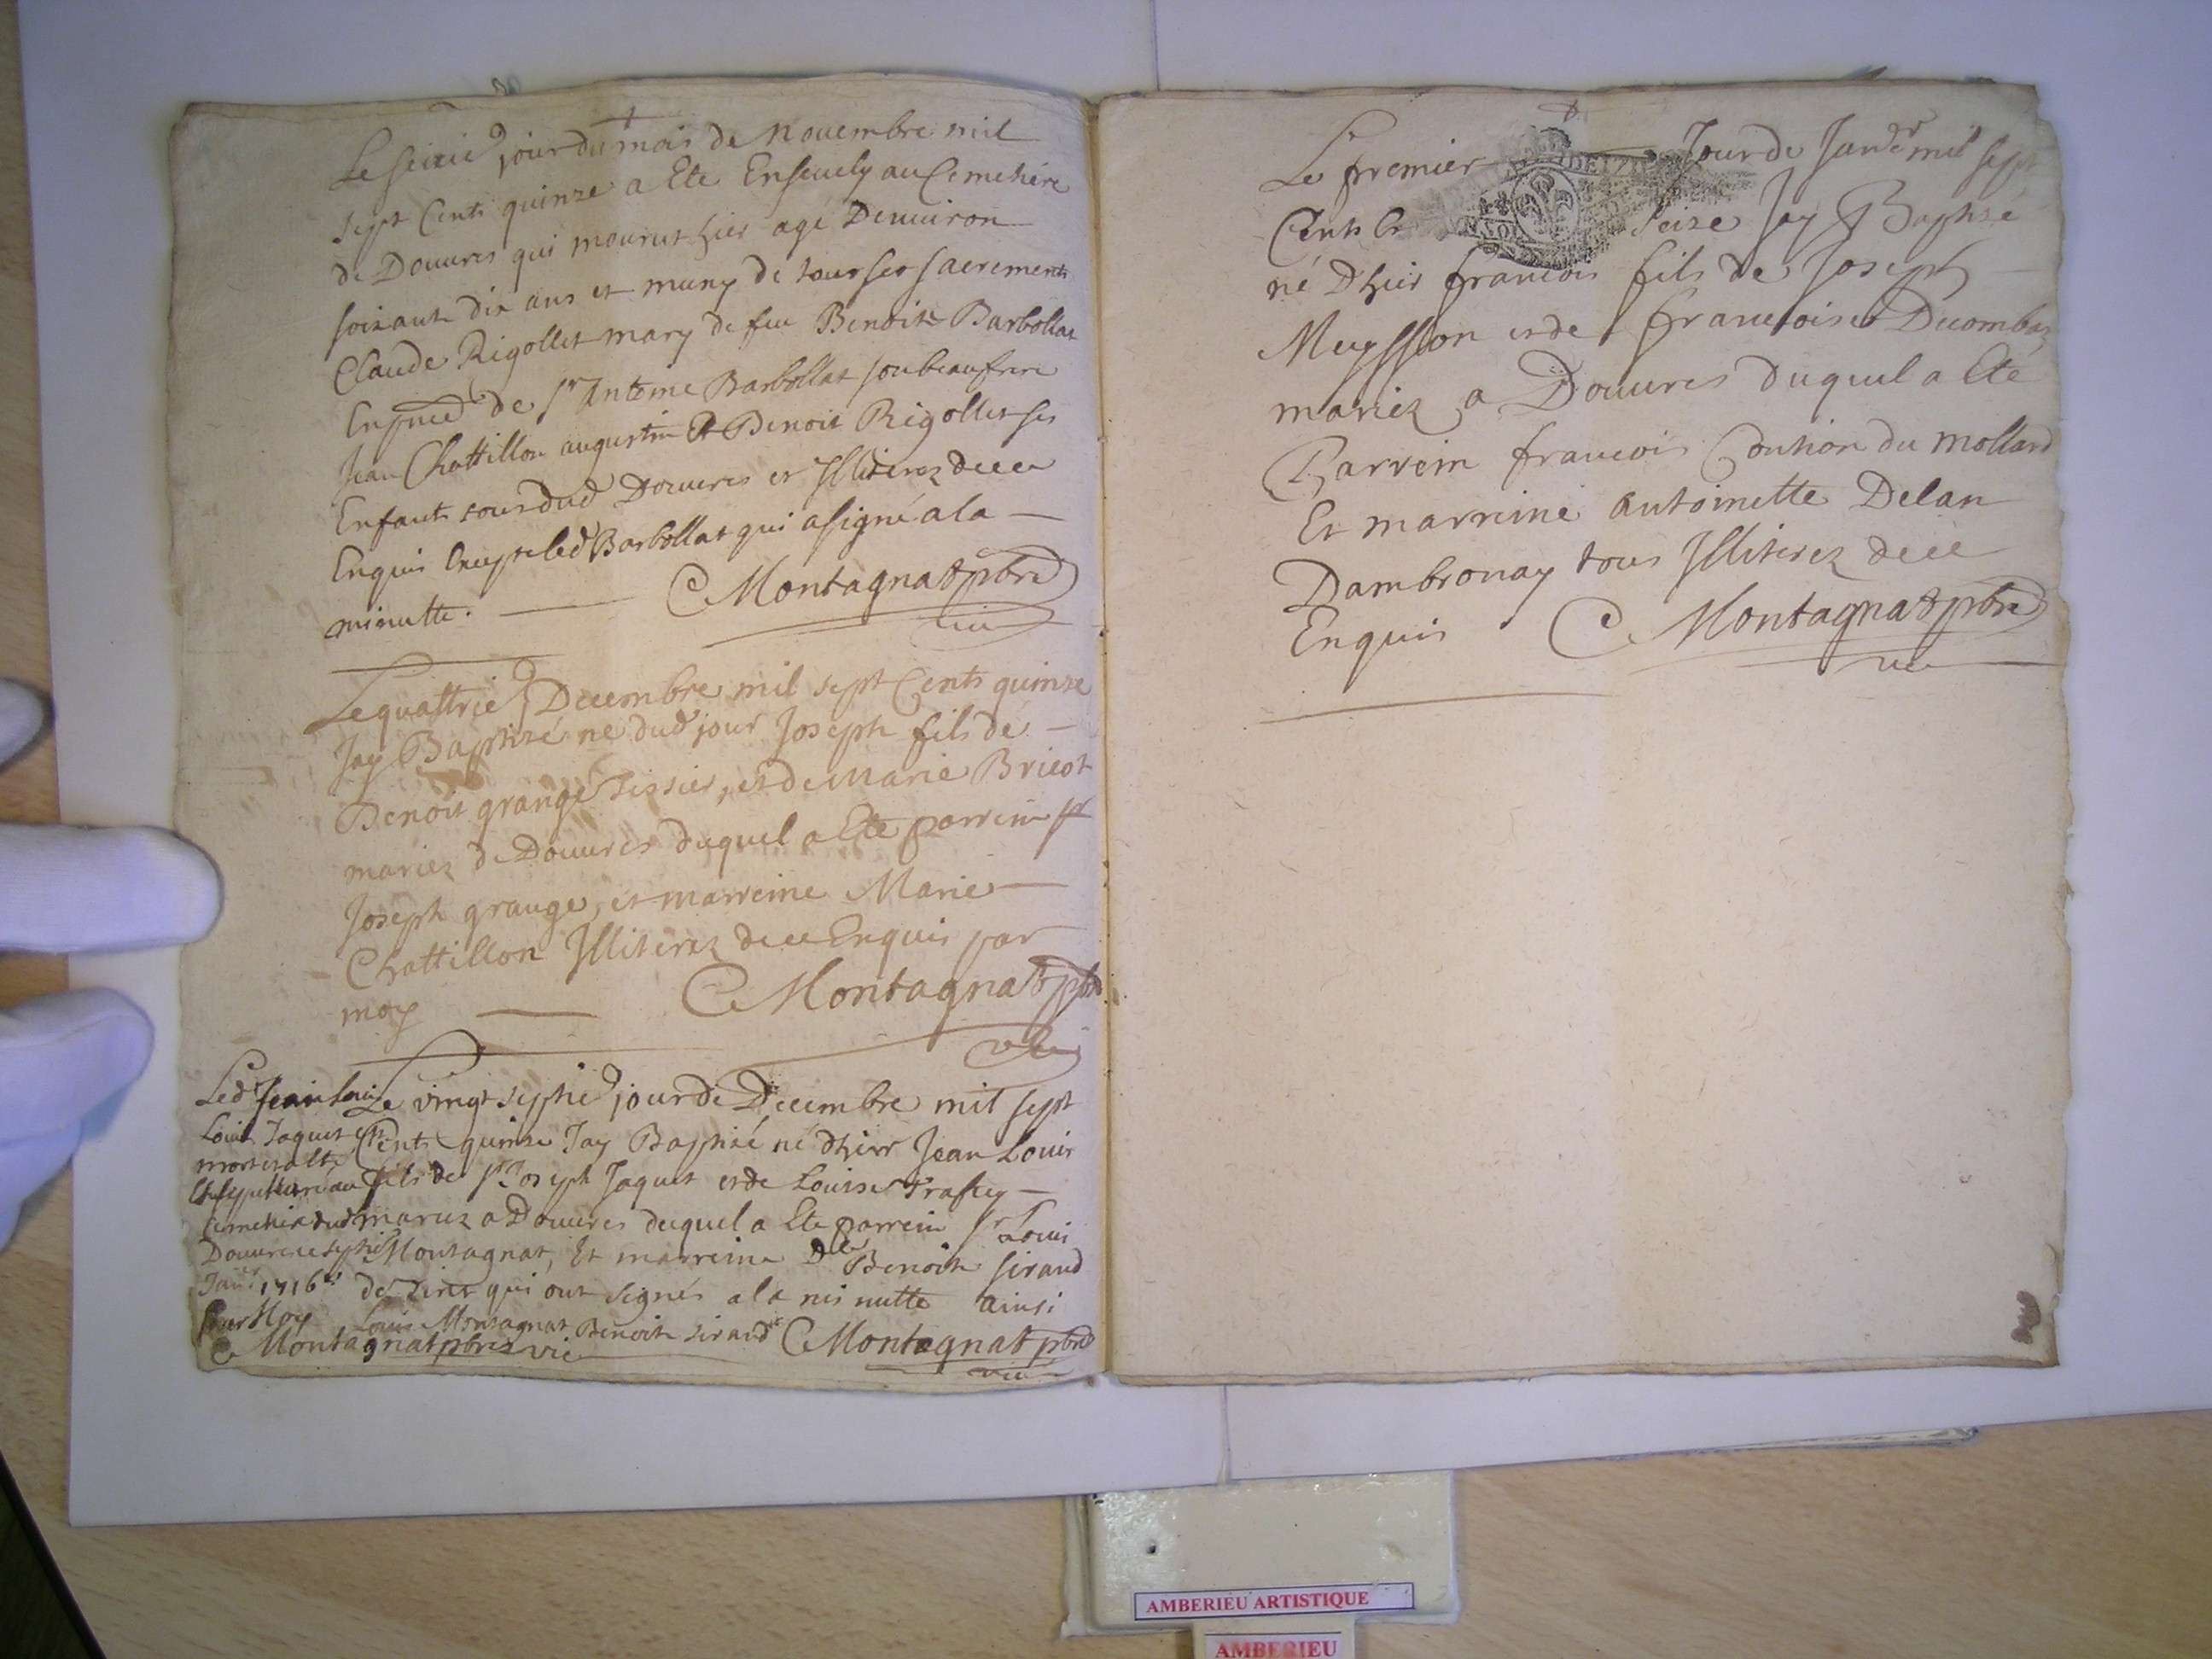 Le seizie jour du mois de Novembre mil
sept Cents quinze a Eté Enseuely au Cemetiere
de Douures qui mourut hier agé Denuiron
soixante dix ans et muny de tous ses sacrements
Claude Rigollet mary de feu Benoite Barbollat
En pnce de Sr Antoine Barbollat son beaufrere
Jean Chattillon augustin Et Benoit Rigollet ses
Enfants tous dud Douures et Illiterez de ce
Enquis Excepte led Barbollat qui a signé a la
minutte. C Montagnat pbre
vic
Le quattrie Decembre mil sept Cents quinze
Jay Baptizé ne dud jour Joseph fils de
Benoit grange tissier, et de Marie Bricot
mariez de Douures duquel a Eté parrein Sr
Joseph grange, et marreine Marie
Chattillon Illiterez de ce Enquis par
moy C Montagnat pbre
vic
Le vingt septie jour de Decembre mil sept
Cents quinze Jay Baptizé né dhier Jean Louis
fils de Sr Joseph Jaquet et de Louise Trafey
mariez a Douures duquel a Eté parrein Sr Louis
Montagnat, Et marreine Dlle Benoite Sirand
de qui ont signés a la minutte ainsi
Louis Montagnat Benoite Sirand C Montagnat pbre
vic
Led Jean Louis
Louis Jaquet est
mort et a Eté
Ensepulturé au
Cemetiere dud
Douures le septie
Janer 1716
par Moy
C Montagnat pbre vic
Le premier Jour de Janer mil sept
Cents seize Jay Baptizé
né Dhier francois fils de Joseph
Meysson et de francoise Decombaz
mariez a Douures duquel a Eté
Parrein francois Conthon du Mollard
Et marreine Antoinette Delan
Dambronay tous Illiterez de ce
Enquis C Montagnat pbre
vic
AMBERIEU ARTISTIQUE
AMBERIEU